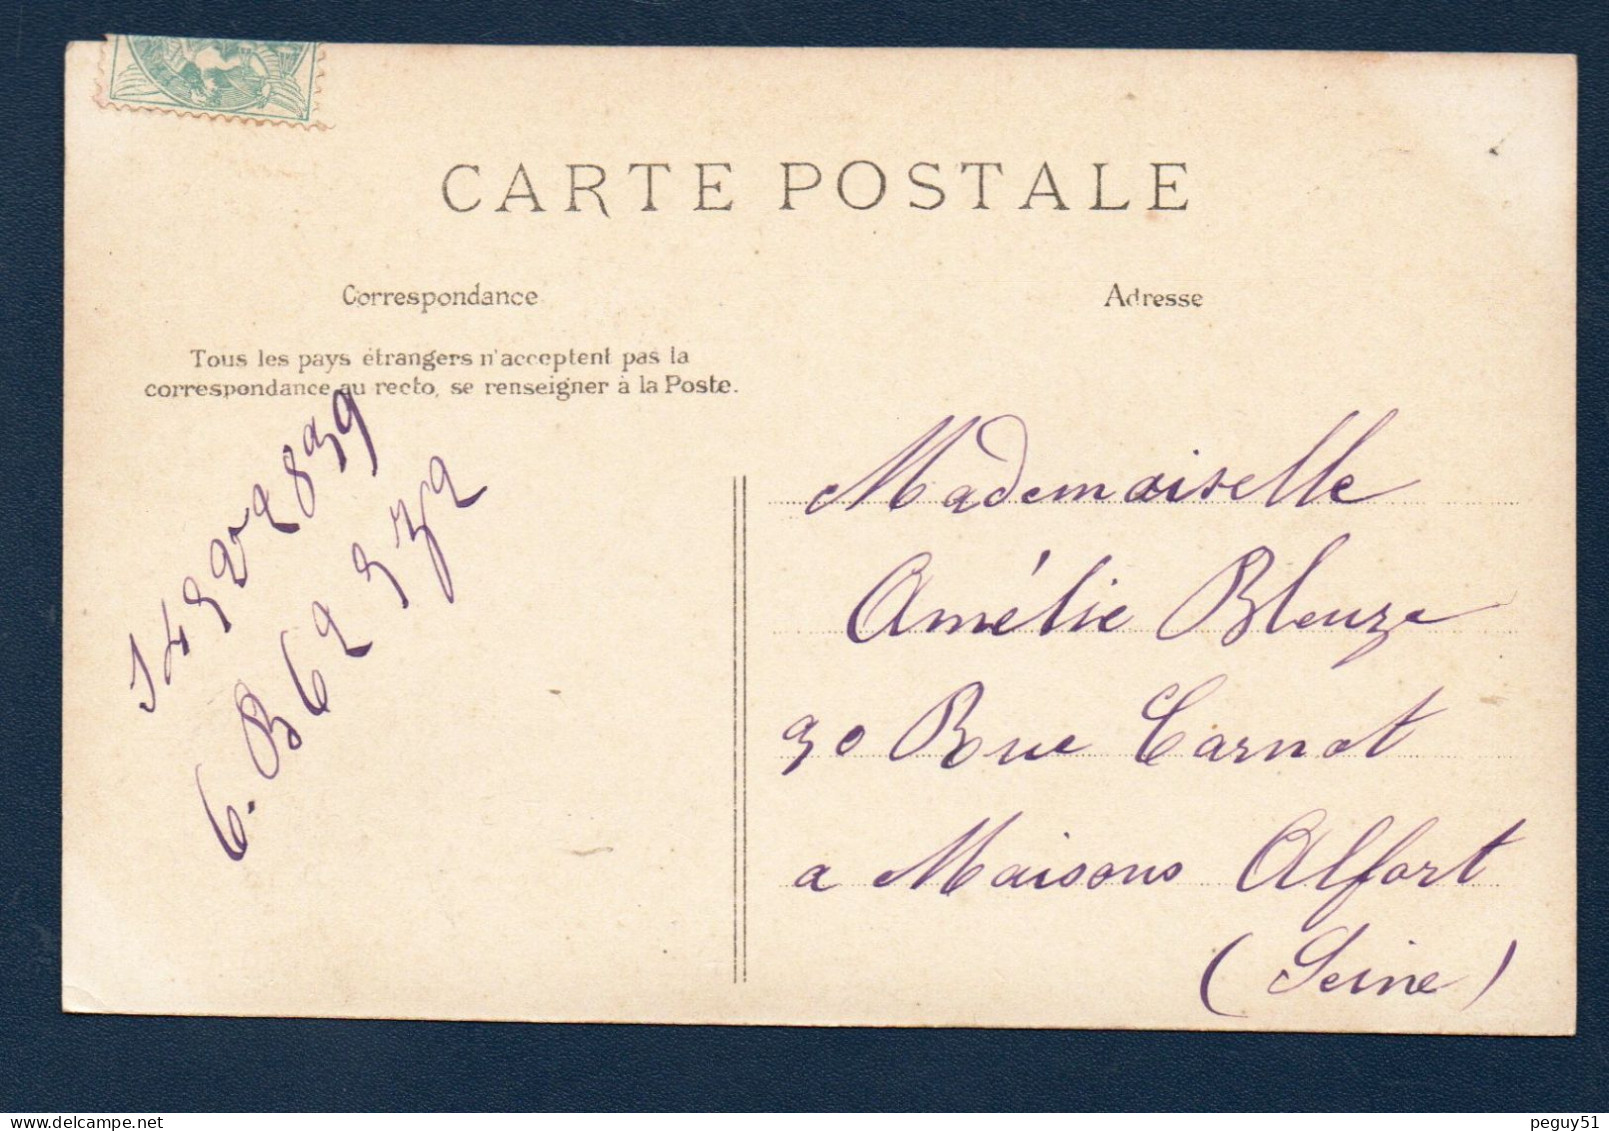 CARTE POSTALE
Correspondance
Adresse
Tous les pays étrangers n'acceptent pas la
correspondance au recto, se renseigner à la Poste.
Mademoiselle
Amélie Bleuze
30 Rue Carnot
a Maisons Alfort
(Seine)
peguy51